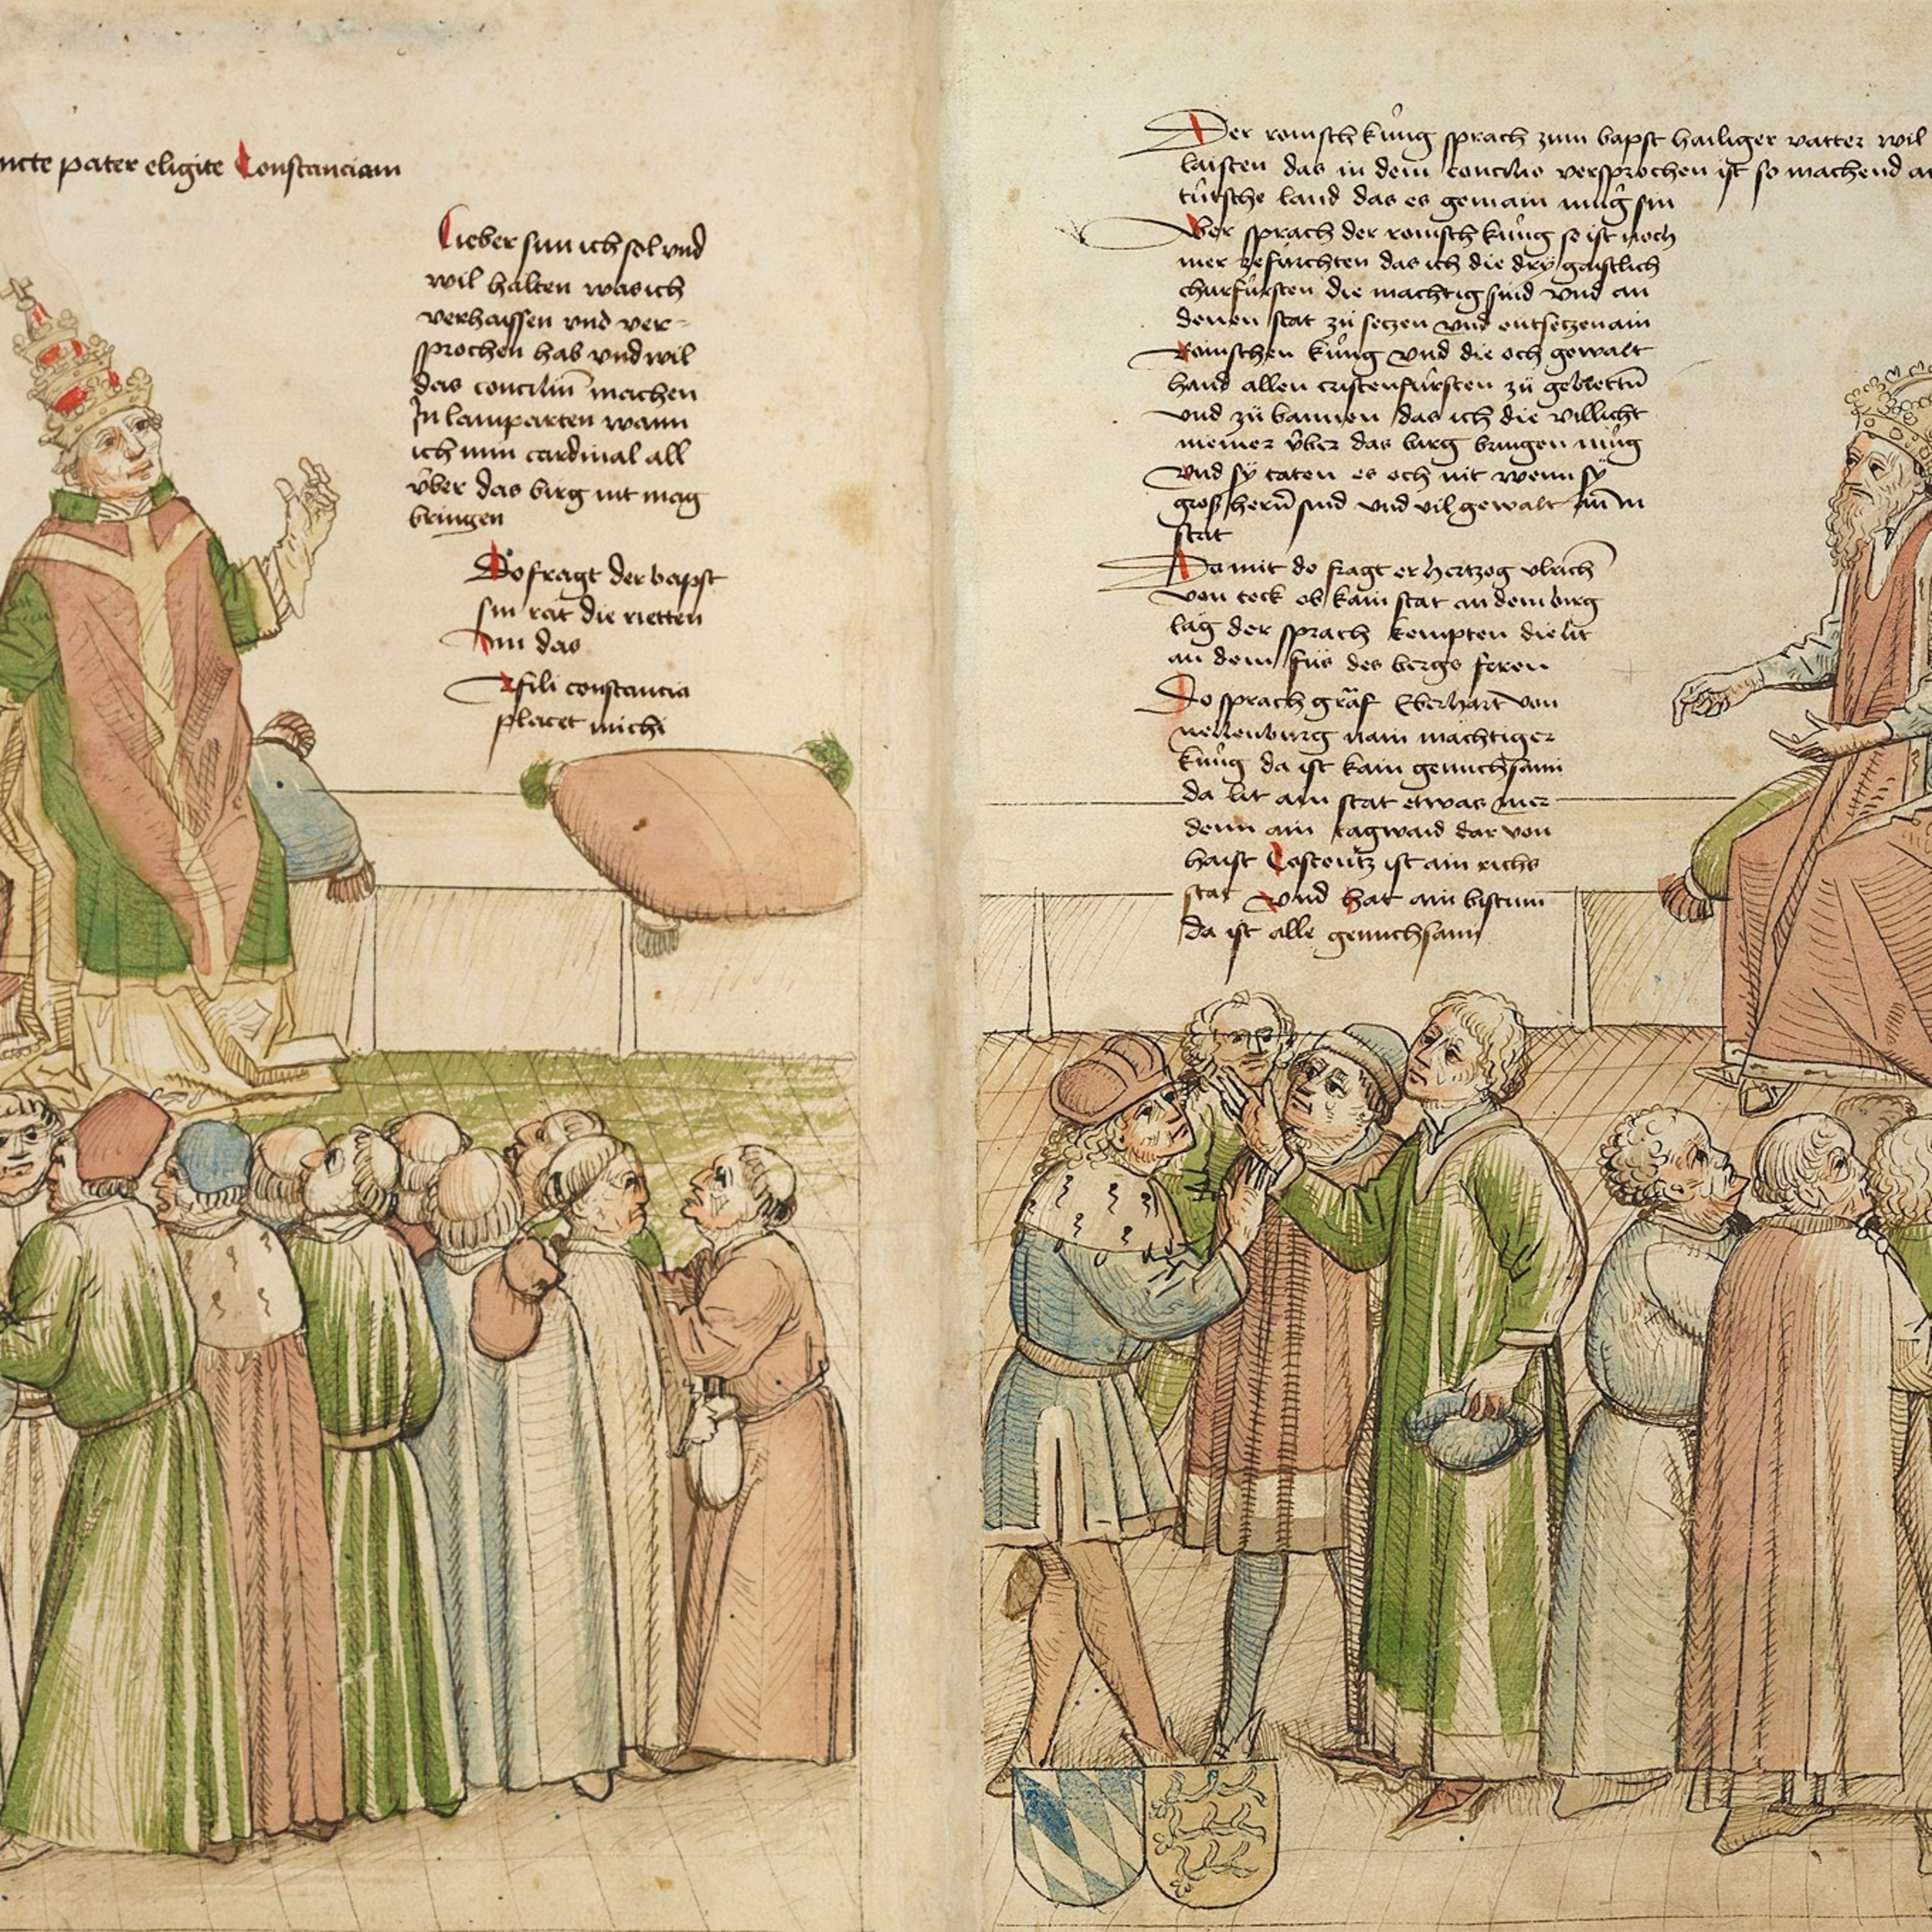 ncte pater eligite Constanciam
Lieber sun ich sol vnd
wil halten was ich
verhaissen vnd ver-
sprochen hab vnd wil
das conciliū machen
In lamparten wann
ich min cardinal all
ůber das birg nit mag
bringen
Do fragt der bapst
sin rät die rietten
im das
fili constancia
placet michi
Der romsch kůng sprach zum bapst hailiger vatter wil
laisten das in dem concilio versprochen ist so machend
tůtsche land das es gemain mùg sin
Aber sprach der romsch kůng so ist noch
mer zefürchten das ich die dry gaistlich
churfürsten die mächtig sind vnd an
denen stat zů seczen vnd entseczen ain
Romschen kůng vnd die och gewalt
hand allen cristenfürsten zů gebiettñ
vnd zů bannen das ich die villicht
niemer ůber das birg bringen mùg
vnd sÿ täten es och nit wenn sÿ
groß herñ sind vnd vil gewalt
stat
Da mit do fragt er hertzog vlrich
von teck ob kain stat an dem birg
läg der sprach kempten die lit
an dem fůs des bergs
Do sprach gräf Eberhart von
nellenburg nain mächtiger
kůng da ist kain genuchsami
da lit ain stat etwas mer
denn ain tagwaid dar von
haist Costentz ist ain richs
stat vnd hat ain bistum
da ist alle genuchsami